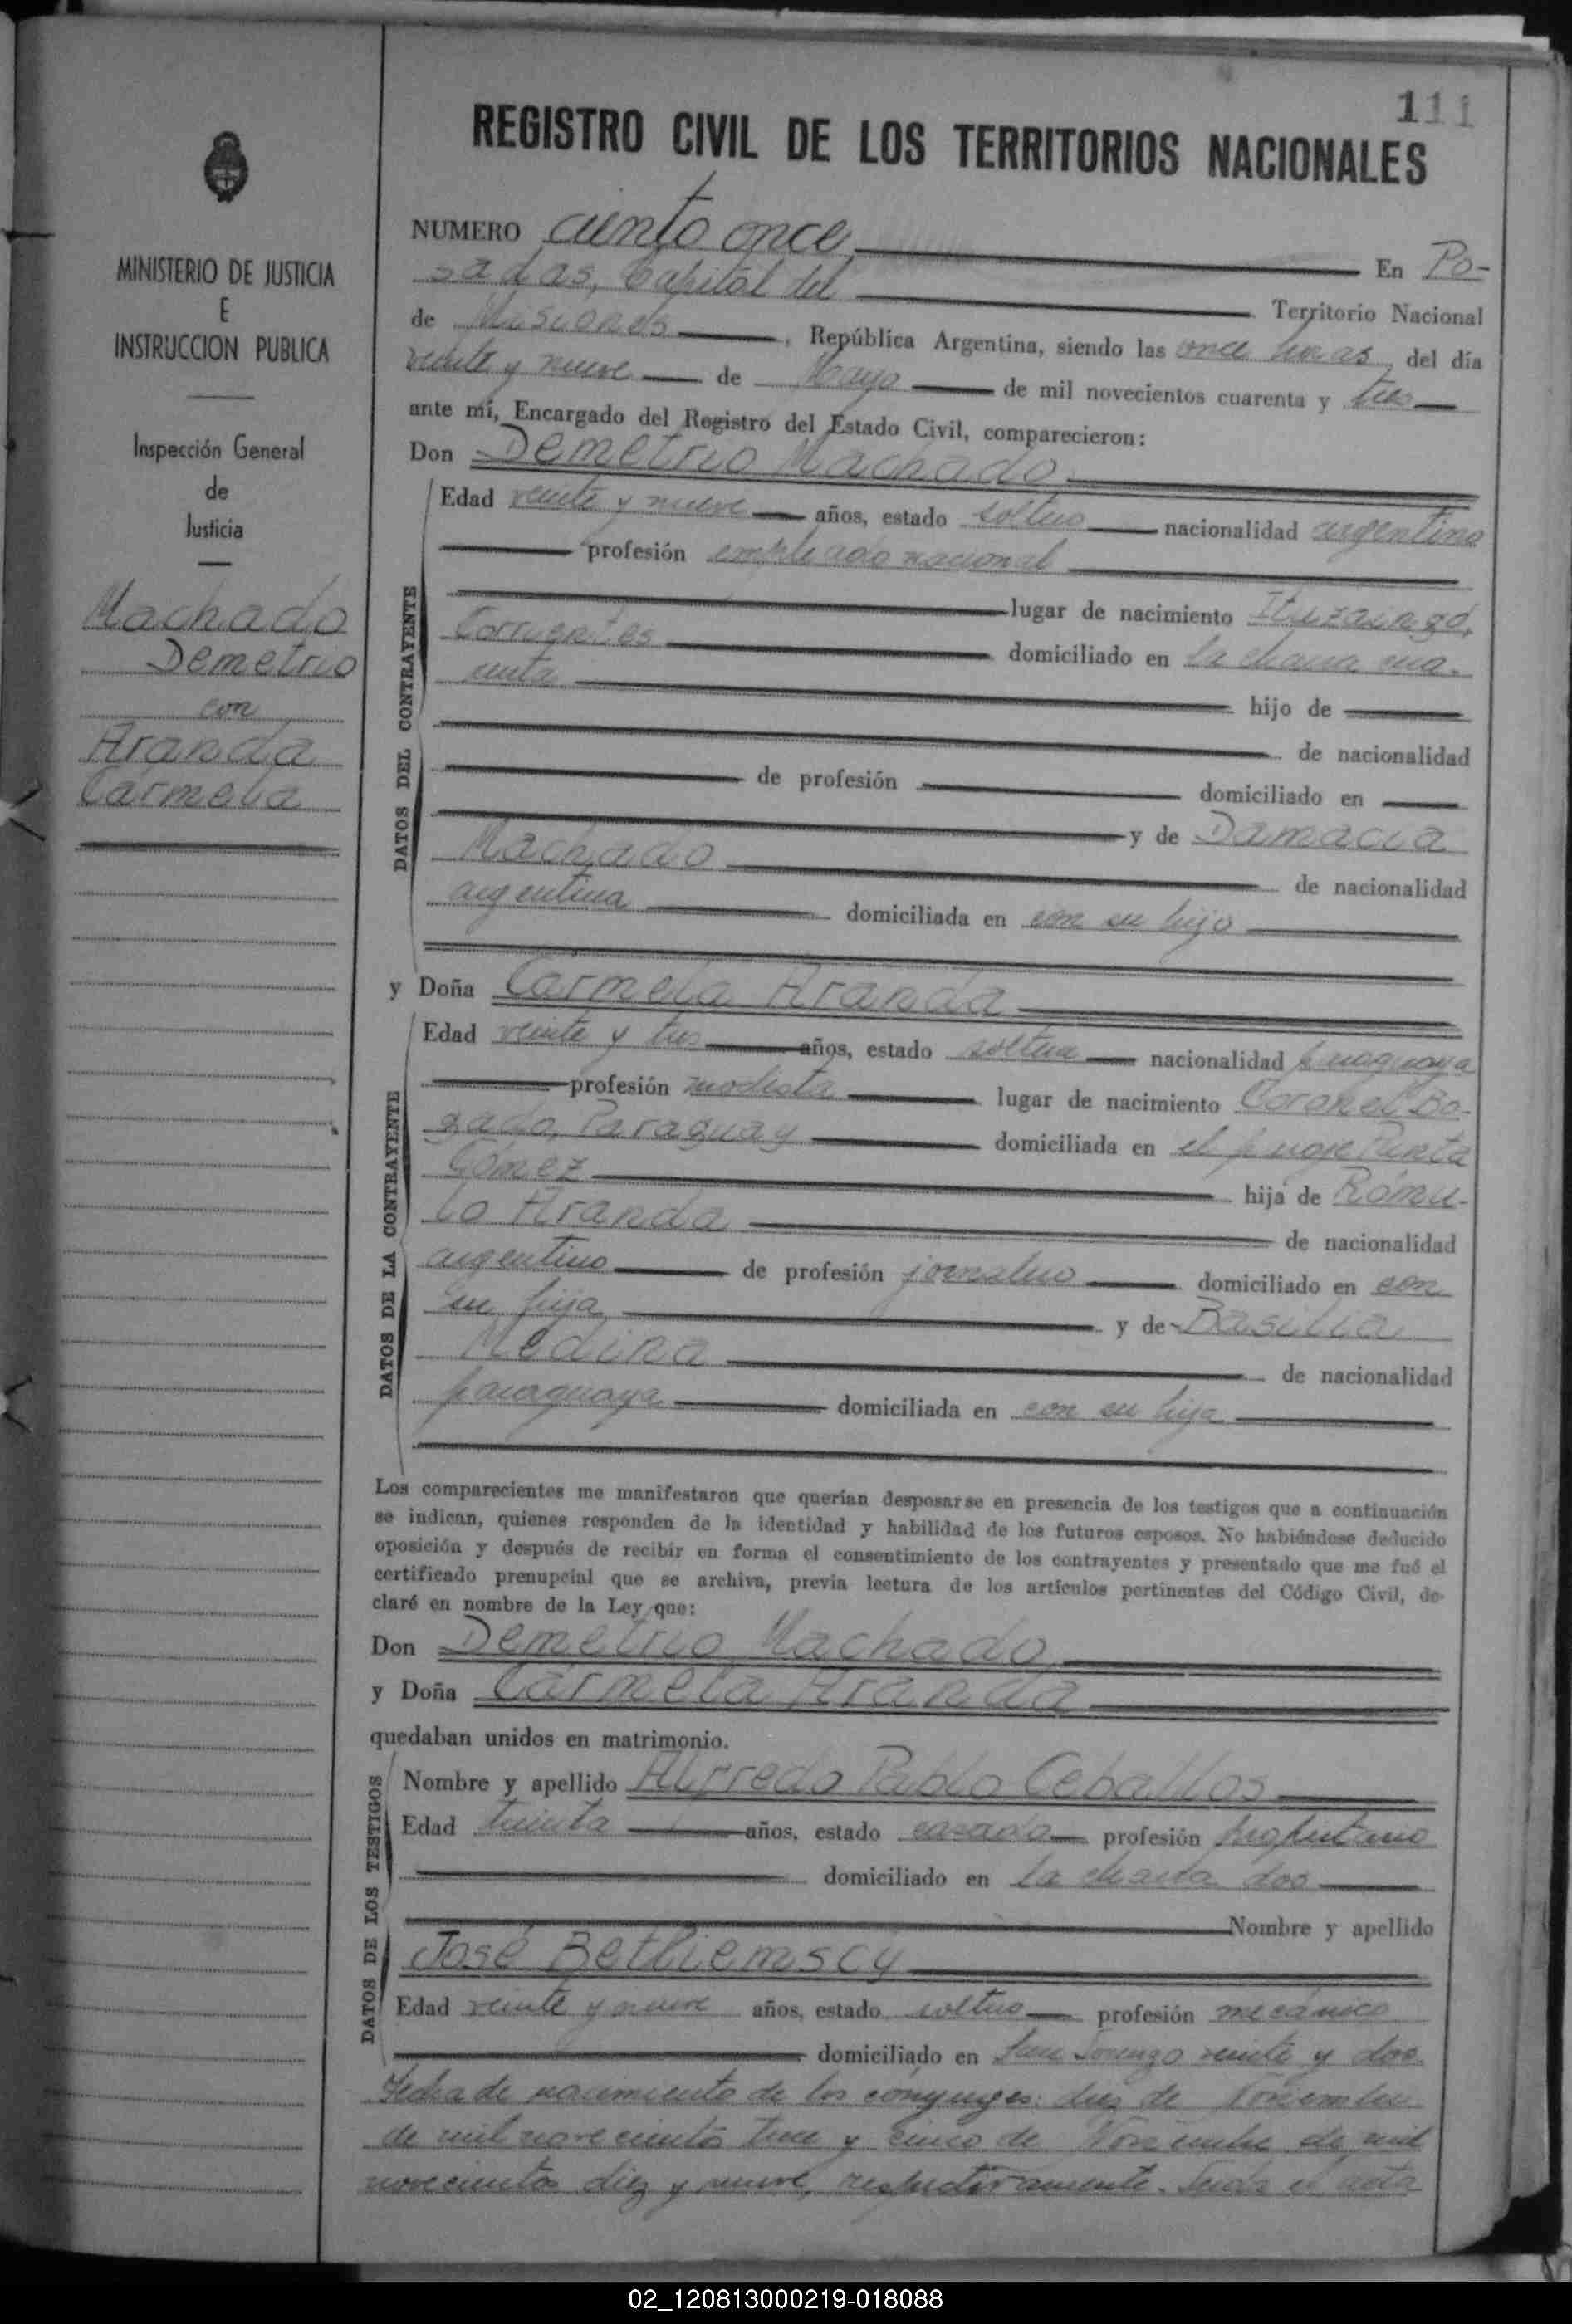 111
REGISTRO CIVIL DE LOS TERRITORIOS NACIONALES
MINISTERIO DE JUSTICIA
E
INSTRUCCION PUBLICA
Inspección General
de
Justicia
Machado
Demetrio
con
Aranda
Carmela
NUMERO ciento once En Po-
sadas, Capital del Territorio Nacional
de Misiones, República Argentina, siendo las once horas del día
veinte y nueve de Mayo de mil novecientos cuarenta y tres
ante mí, Encargado del Registro del Estado Civil, comparecieron:
Don Demetrio Machado
DATOS DEL CONTRAYENTE
Edad veinte y nueve años, estado soltero nacionalidad argentina
profesión empleado nacional
lugar de nacimiento Ituzaingó,
Corrientes domiciliado en la chacra cua-
renta hijo de
de nacionalidad
de profesión domiciliado en
y de Damacia
Machado de nacionalidad
argentina domiciliada en con su hijo
y Doña Carmela Aranda
DATOS DE LA CONTRAYENTE
Edad veinte y tres años, estado soltera nacionalidad paraguaya
profesión modista lugar de nacimiento Coronel Bo-
gado, Paraguay domiciliada en el paraje Punta
Gómez hija de Rómu-
lo Aranda de nacionalidad
argentino de profesión jornalero domiciliado en con
su hija y de Basilia
Medina de nacionalidad
paraguaya domiciliada en con su hija
Los comparecientes me manifestaron que querían desposarse en presencia de los testigos que a continuación
se indican, quienes responden de la identidad y habilidad de los futuros esposos. No habiéndose deducido
oposición y después de recibir en forma el consentimiento de los contrayentes y presentado que me fué el
certificado prenupcial que se archiva, previa lectura de los artículos pertinentes del Código Civil, de-
claré en nombre de la Ley que:
Don Demetrio Machado
y Doña Carmela Aranda
quedaban unidos en matrimonio.
DATOS DE LOS TESTIGOS
Nombre y apellido Alfredo Pablo Ceballos
Edad treinta años, estado casado profesión propietario
domiciliado en la chacra dos
Nombre y apellido
José Bethiemscy
Edad veinte y nueve años, estado soltero profesión mecánico
domiciliado en San Lorenzo veinte y dos.
Fecha de nacimiento de los cónyuges: diez de Noviembre
de mil novecientos trece y cinco de Noviembre de mil
novecientos diez y nueve, respectivamente. Leída el acta
02_120813000219-018088